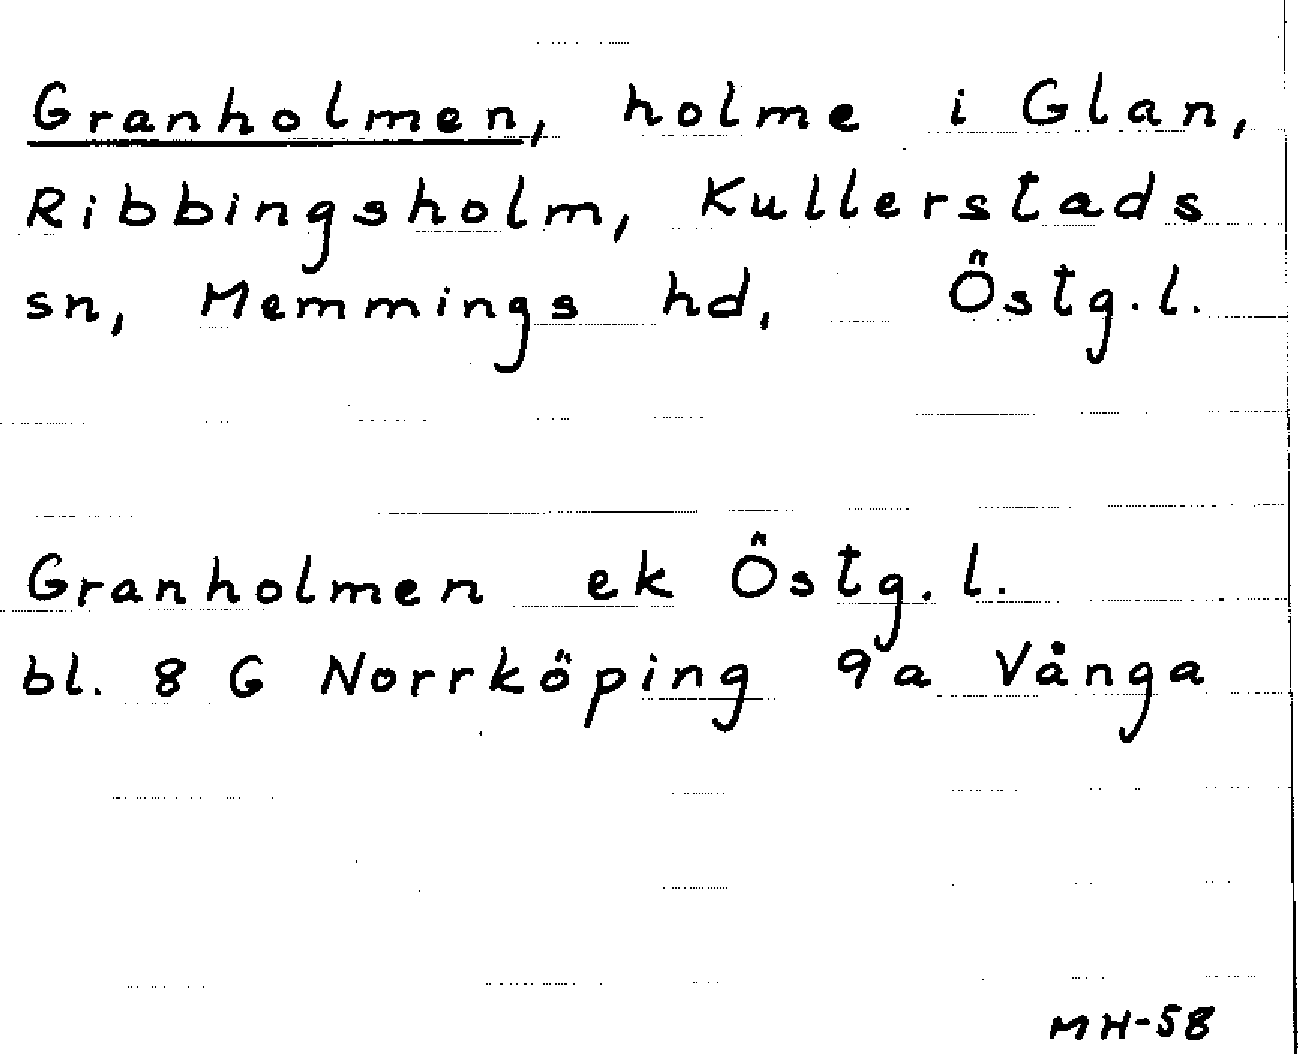 Granholmen, holme i Glan,
Ribbingsholm, Kullerstads
sn, Memmings hd, Östg.l.
Granholmen ek Östg.l.
bl. 8 G Norrköping 9a Vånga
MH-58